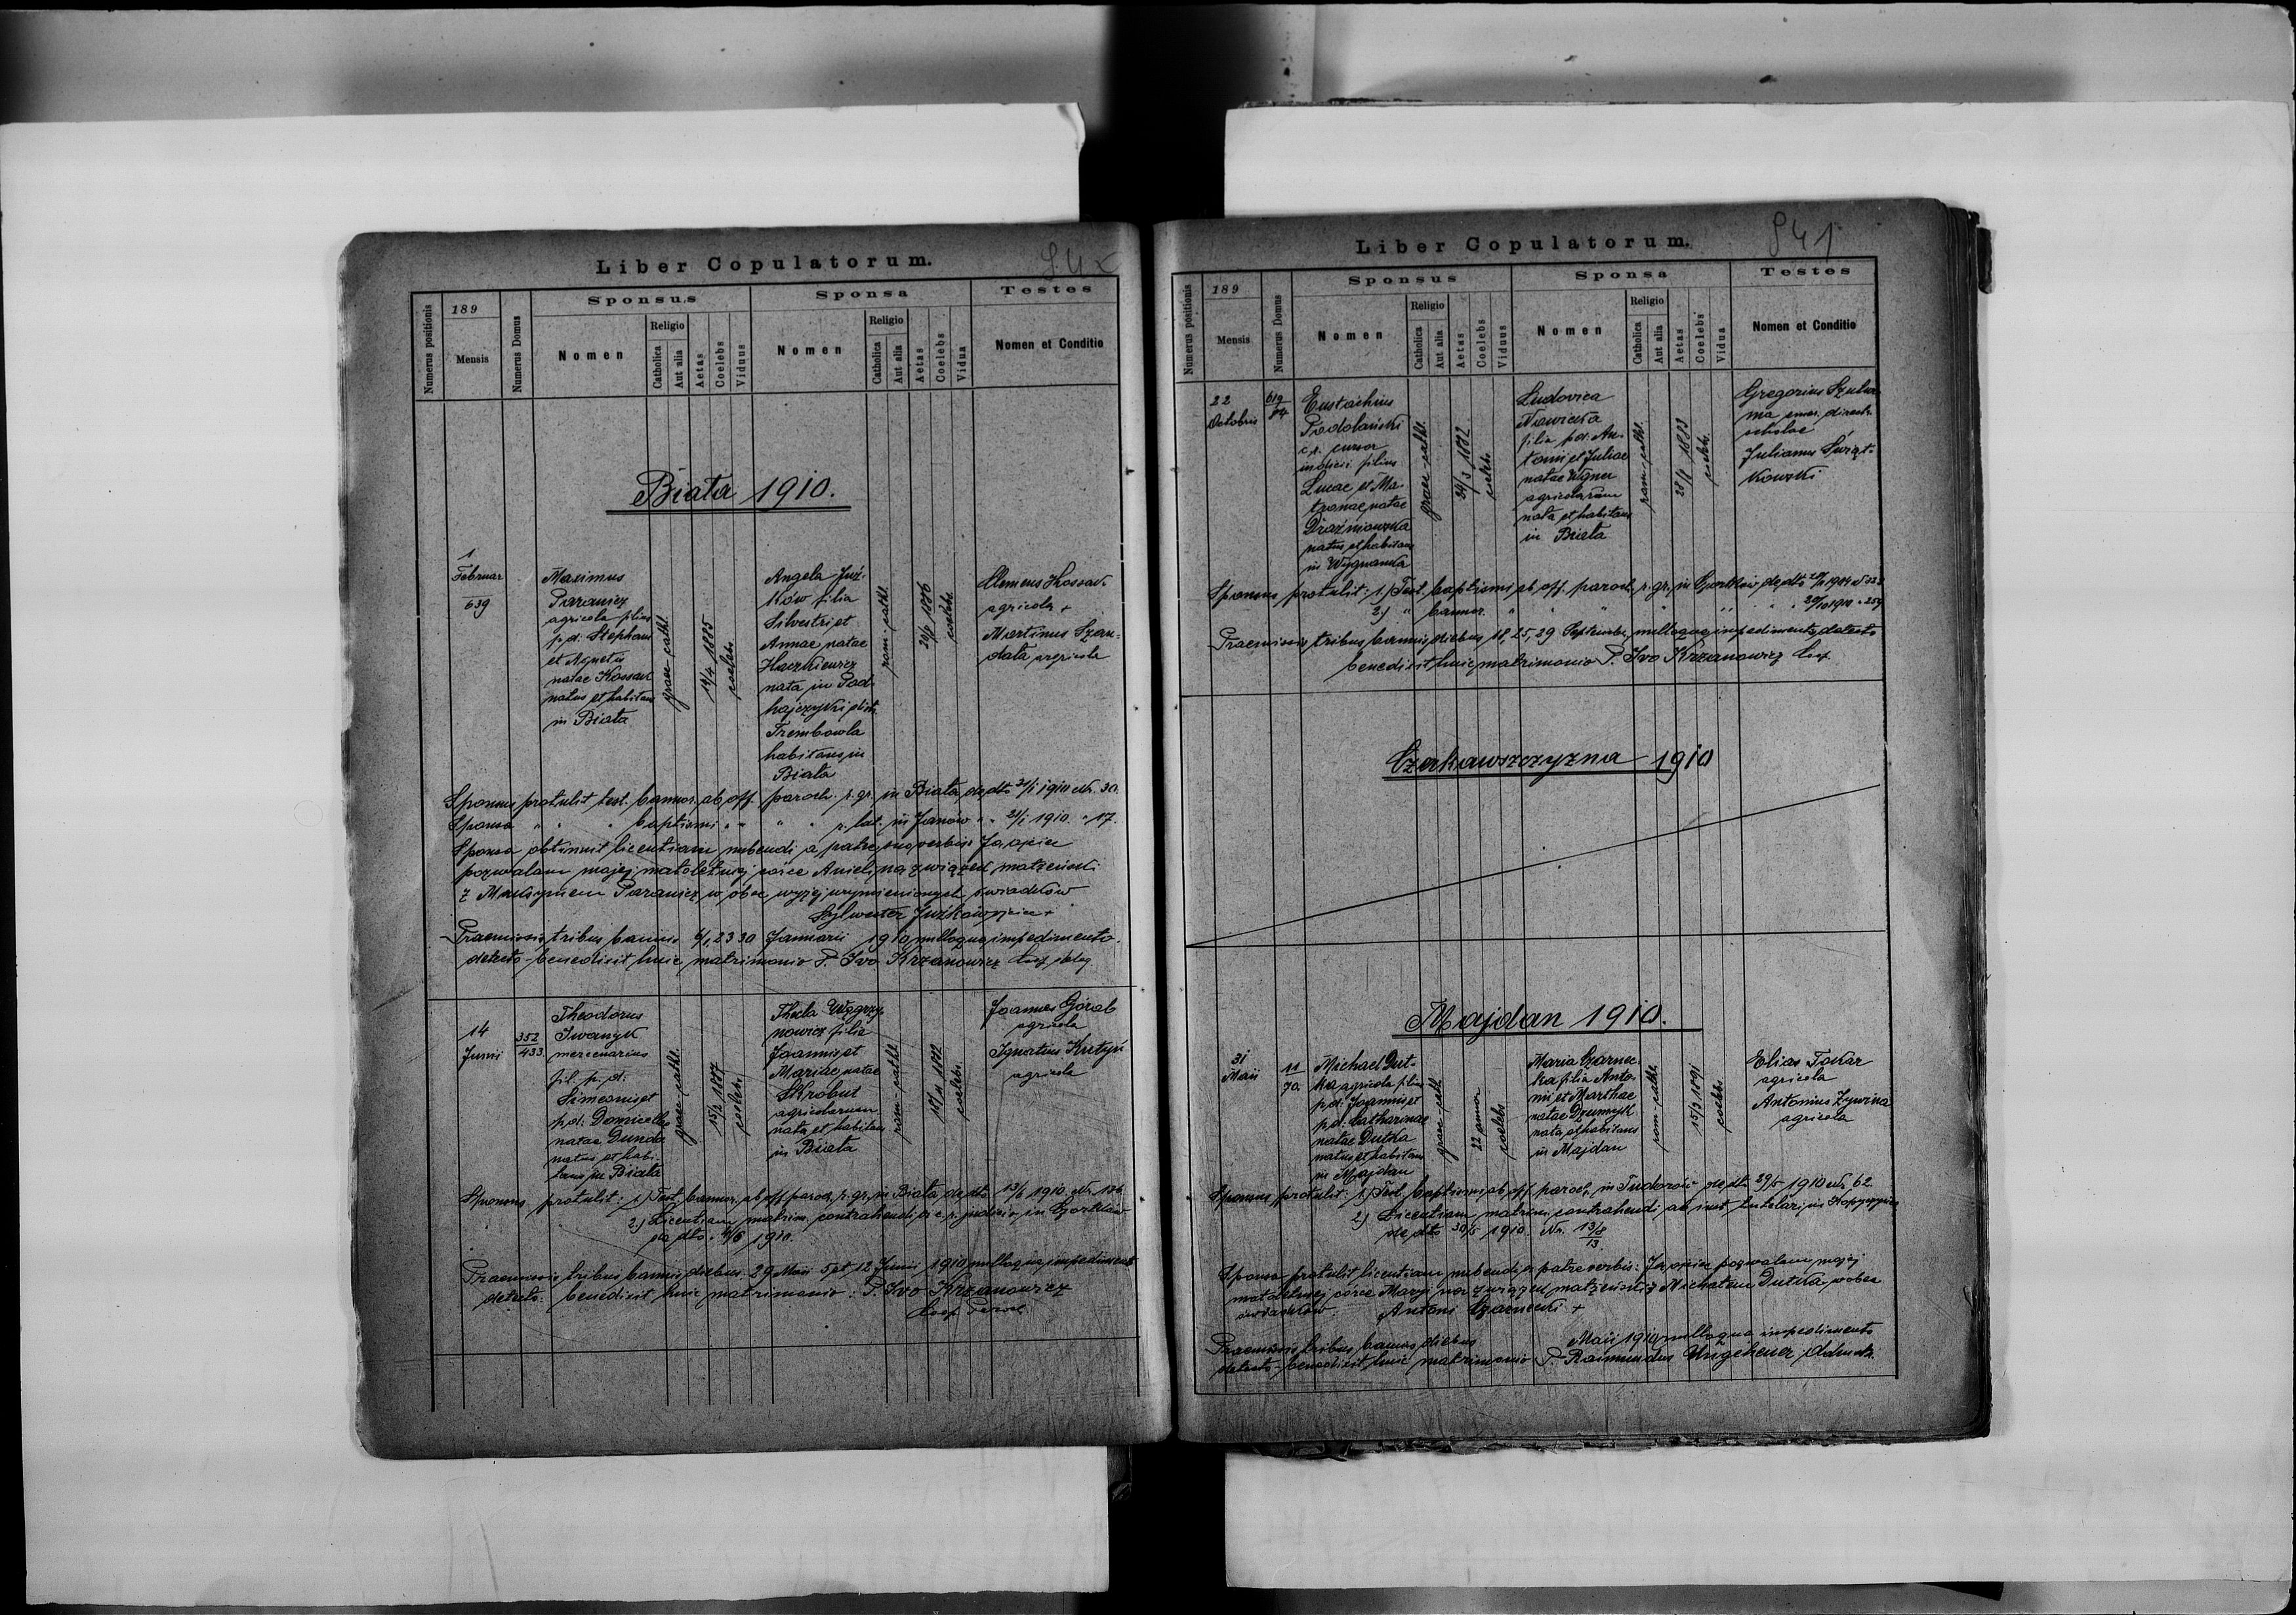 Liber Copulatorum.
Numerus positionis
189
Mensis
Numerus Domus
Sponsus
Nomen
Religio
Catholica
Aut alia
Aetas
Coelebs
Viduus
Sponsa
Nomen
Religio
Catholica
Aut alia
Aetas
Coelebs
Vidua
Testes
Nomen et Conditio
Biała 1910.
1
Februar
639
Maximus
Paraniez
agricola filius
p. d. Stephani
et Agnetis
natae Kossak
natus et habitans
in Biała
graec-cathl.
1885
coelebs
Angela Juź-
ków filia
Silvestri et
Annae natae
Haczkiewicz
nata in Pod-
hajczyki distr.
Trembowla
habitans in
Biała
rom-cathl.
1886
coelebs
Clemens Kossak
agricola +
Martinus Szan-
data agricola
Sponsus protulit test. bannor. ab off. paroch. r. gr. in Biała de dto 31/1 1910 Nr. 30.
Sponsa " " baptismi " " " r. lat. in Janów " " 21/1 1910. " 17.
Sponsa obtinuit licentiam nubendi a patre suo verbis: Ja ojciec
pozwalam mojej małoletniej córce Anieli na związek małżeński
z Maksymem Paraniez w obec wyżej wymienionych świadków
Sylwester Juźków ojciec +
Praemissis tribus bannis 6/1, 23 30 Januarii 1910 nulloque impedimento
detecto benedixit huic matrimonio P. Ivo Krzanowicz Coop. deleg.
14
Junii
352
433.
Theodorus
Iwanyk
mercenarius
fil. p. d:
Simeonis et
p. d: Domicellae
natae Dunda
natus et habi-
tans in Biała
graec-cathl.
15/2 1887
coelebs
Thecla Węgrzy-
nowicz filia
Joannis et
Mariae natae
Skrobut
agricolarum
nata et habitans
in Biała
rom-cathl.
coelebs
Joannes Góral
agricola
Ignatius Kutyń
agricola
Sponsus protulit: 1.) Test. bannor. ab off. paroch. r. gr. in Biała de dto 13/6 1910. Nr. 136
2.) Licentiam matrim. contrahendi a c. r. judicio in Czortków
de dto. 4/6 1910.
Praemissis tribus bannis diebus: 29 Maii 5 et 12 Junii 1910 nulloque impedimento
detecto. benedixit huic matrimonio: P. Ivo Krzanowicz
Coop. Paroch.
Liber Copulatorum.
841
Numerus positionis
189
Mensis
Numerus Domus
Sponsus
Nomen
Religio
Catholica
Aut alia
Aetas
Coelebs
Viduus
Sponsa
Nomen
Religio
Catholica
Aut alia
Aetas
Coelebs
Vidua
Testes
Nomen et Conditio
22
Octobris
619
84
Eustachius
Podolański
c. r. cursor
indicii filius
Lucae et Ma-
tronae natae
natus et habitans
in Wygnanka
graec-cathl.
coelebs
Ludovica
Nowicka
filia p. d. An-
tonii et Juliae
natae Wigner
agricolarum
nata et habitans
in Biała
rom-cathl.
coelebs
Gregorius
ma emer. direct.
scholae
Julianus Świąt-
kowski
Sponsus protulit: 1.) Test. baptismi ab off. paroch. r. gr. in Czortków de dto
2.) " bannor. " " " " " " "
Praemissis tribus bannis diebus 18, 25, 29 Septembr. nulloque impedimento detecto
benedixit huic matrimonio P. Ivo Krzanowicz Coop.
Czerkawszczyzna 1910
Majdan 1910.
31
Maii
11
70.
Michael Dut-
ka agricola filius
p. d: Joannis et
p. d: Catharinae
natae Dutka
natus et habitans
in Majdan
graec-cath.
22 annor.
coelebs
Maria Czarnec-
ka filia Anto-
nii et Marthae
natae Dzumyk
nata et habitans
in Majdan
rom-cathl.
15/3 1891
coelebs
Elias Tokar
agricola
Antonius Żywina
agricola
Sponsus protulit: 1.) Test. baptismi ab off. paroch. in Tudorów de dto 29/5 1910 Nr. 62.
2.) Licentiam matrim. contrahendi ab inst. tutelari in Kopyczyńce
de dto 30/5 1910. Nr. 13/8
13.
Sponsa protulit licentiam nubendi a patre verbis: Ja ojciec pozwalam mojej
małoletniej córce Maryi na związek małżeński z Michałem Dutka wobec
świadków. Antoni Czarnecki +
Praemissis tribus bannis diebus Maii 1910 nulloque impedimento
detecto benedixit huic matrimonio P. Raimundus Ungeheuer, Admstr.